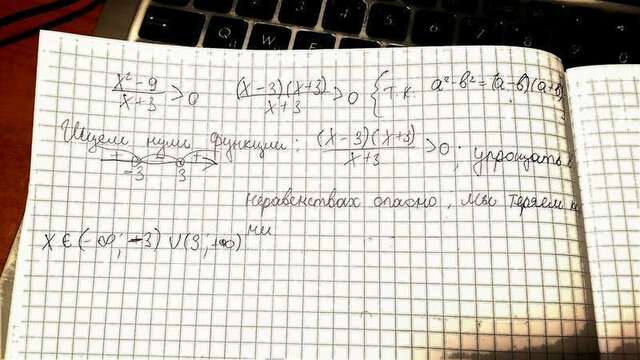 x² - 9 / x + 3 > 0 (x - 3)(x + 3) / x + 3 > 0 {т.к. a² - b² = (a - b)(a + b)
Ищем нули функции: (x - 3)(x + 3) / x + 3 > 0; упрощать
+ - +
-3 3
неравенствах опасно, мы теряем
x ∈ (-∞; -3) ∪ (3; +∞)